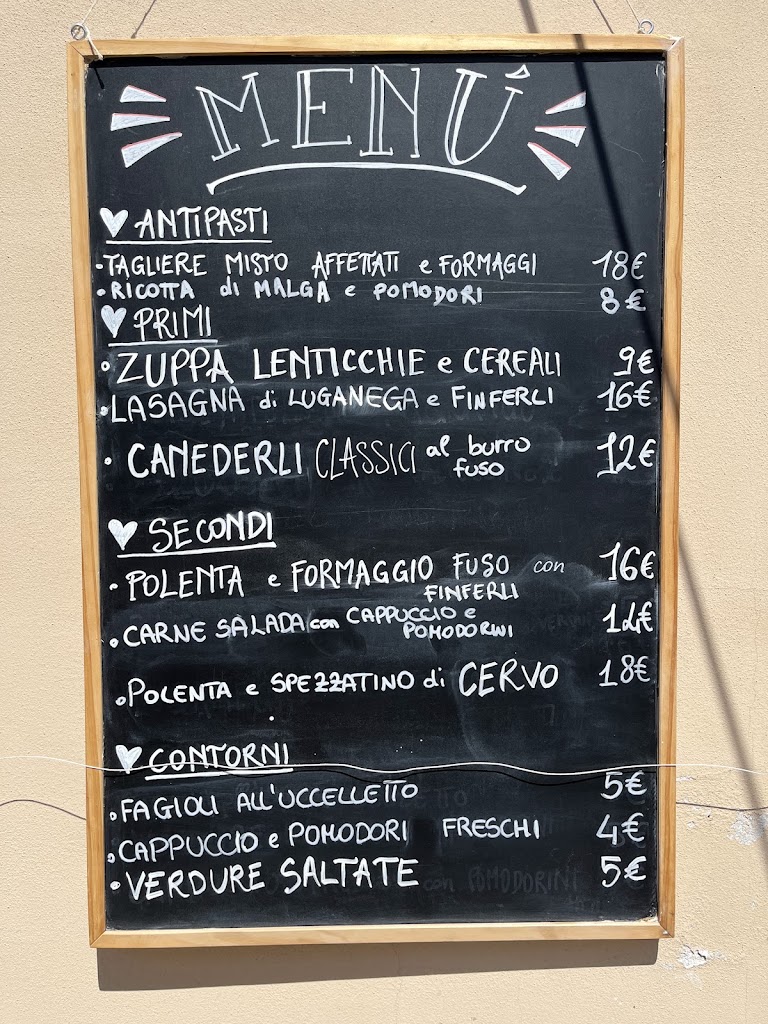 MENÚ
ANTIPASTI
•TAGLIERE MISTO AFFETTATI e FORMAGGI 18€
•RICOTTA di MALGA e POMODORI 8€
PRIMI
•ZUPPA LENTICCHIE e CEREALI 9€
•LASAGNA di LUGANEGA e FINFERLI 16€
•CANEDERLI CLASSICI al burro fuso 12€
SECONDI
•POLENTA e FORMAGGIO FUSO con 16€
FINFERLI
•CARNE SALADA con CAPPUCCIO e
POMODORINI
•POLENTA e SPEZZATINO di CERVO 18€
CONTORNI
•FAGIOLI ALL'UCCELLETTO 5€
•CAPPUCCIO e POMODORI FRESCHI 4€
•VERDURE SALTATE 5€
con POMODORINI